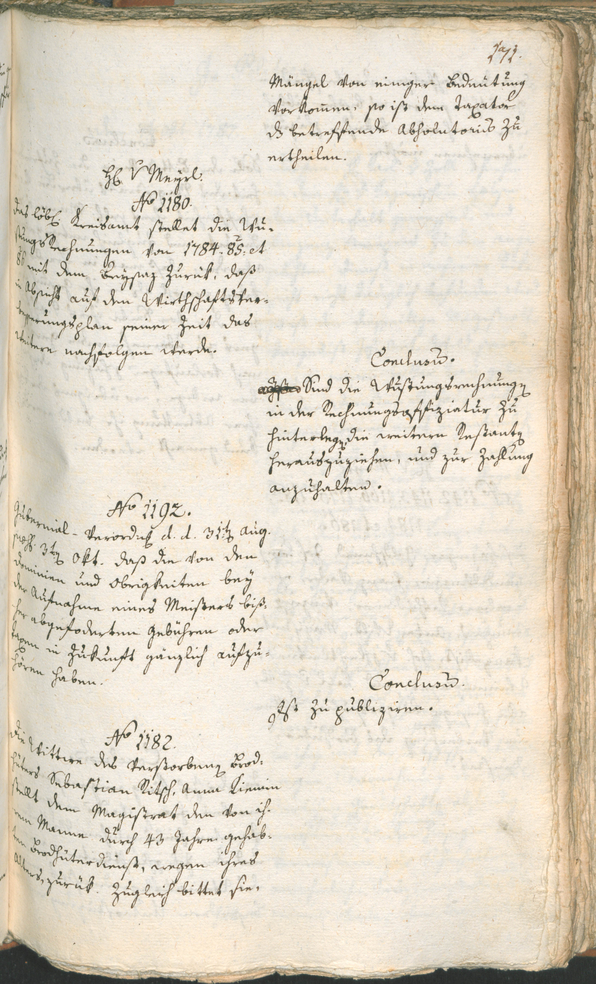 272.
Mängel von einiger Bedeutung
vorkommen: so ist dem Taxator
ds betreffende Absolutorium zu
ertheilen.
H. v Meyrl.
No 1180.
Das löbl. Kreisamt stellet die Wü-
stungsrechnungen von 1784. 85. et
86 mit dem Beysaz zurük, daß
in Absicht auf den Wirthschaftsver-
besserungsplan seiner Zeit das
weitere nachfolgen werde.
Conclusum.
Sind die Wüstungsrechnungen
in der Rechnungsoffiziatur zu
hinterlegen, die weitern Restanten
herauszuziehen, und zur Zahlung
anzuhalten.
No 1192.
Gubernial-Verordng d. d. 31ten Aug.
3ten Okt. daß die von den
Dominien und Obrigkeiten bey
der Aufnahme eines Meisters biß-
her abgefoderten Gebühren oder
Taxen in Zukunft gänzlich aufzu-
hören haben.
Conclusum.
Ist zu publiziren.
No 1182.
Die Wittwe des verstorbenen Brod-
hüters Sebastian Ritsch, Anna
stellt dem Magistrat den von ih-
rem Manne durch 43 Jahre gehab-
ten Brodhüterdienst, wegen ihres
Alters, zurük. Zugleich bittet sie,